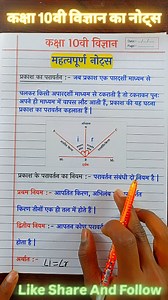 कक्षा 10वी विज्ञान का नोट्स
कक्षा 10वी विज्ञान
महत्वपूर्ण नोट्स
प्रकाश का परावर्तन :- जब प्रकाश एक पारदर्शी माध्यम से
चलकर किसी अपारदर्शी माध्यम से टकराती है तो टकराकर पुनः
अपने ही माध्यम में वापस लौट आती है, प्रकाश की यह घटना
प्रकाश का परावर्तन कहलाता है।
i r
प्रकाश के परावर्तन का नियम :- परावर्तन संबंधी दो नियम है।
प्रथम नियम :- आपतित किरण, अभिलंब
किरण तीनों एक ही तल में होते है।
द्वितीय नियम :- आपतन कोण
होता है।
अर्थात :- ∠i=∠r
Like Share And Follow